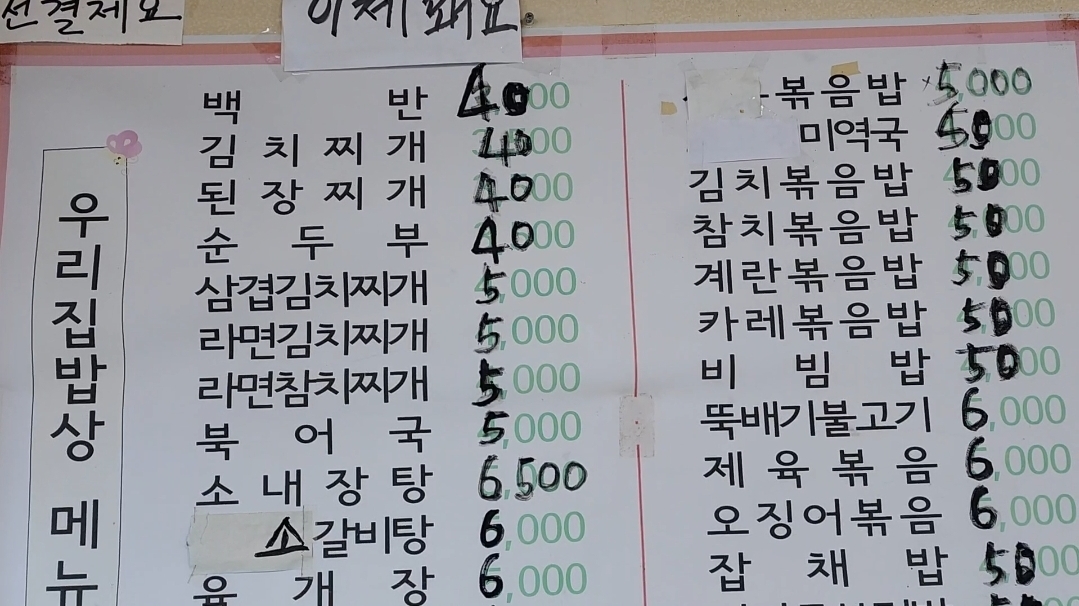 선결제요
이제 돼요.
우리집밥상 메뉴
백반 4000
김치찌개 4000
된장찌개 4000
순두부 4000
삼겹김치찌개 5,000
라면김치찌개 5,000
라면참치찌개 5,000
북어국 5,000
소내장탕 6,500
소갈비탕 6,000
육개장 6,000
볶음밥 5,000
미역국 5000
김치볶음밥 5000
참치볶음밥 5000
계란볶음밥 5000
카레볶음밥 5000
비빔밥 5000
뚝배기불고기 6,000
제육볶음 6,000
오징어볶음 6,000
잡채밥 5000